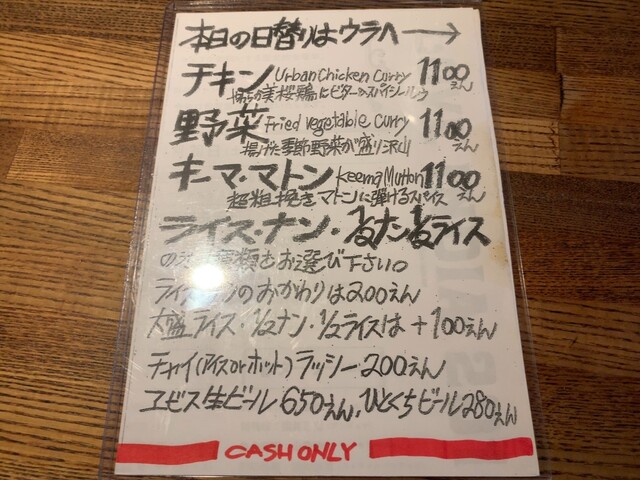 本日の日替りはウラへ→
チキン Urban Chicken Curry 1100えん
美桜鶏にビターかスパイシー
野菜 Fried vegetable curry 1100えん
揚げた季節野菜が盛り沢山
キーマ・マトン Keema Mutton 1100えん
超粗挽きマトンに弾けるスパイス
ライス・ナン・½ナン½ライス
のうち種類をお選び下さい。
ライス のおかわりは200えん
大盛ライス・½ナン・½ライスは+100えん
チャイ(アイスorホット)ラッシー200えん
ヱビス生ビール650えん、ひとくちビール280えん
CASH ONLY